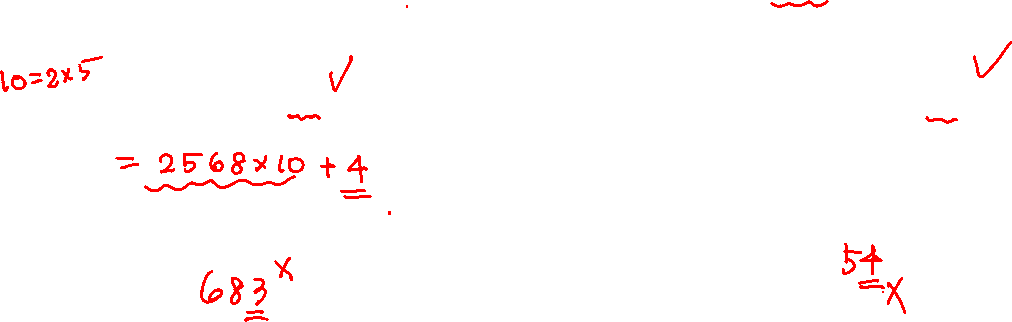 10=2×5 ✓ ✓
= 2568×10 + 4
683 × 54 ×